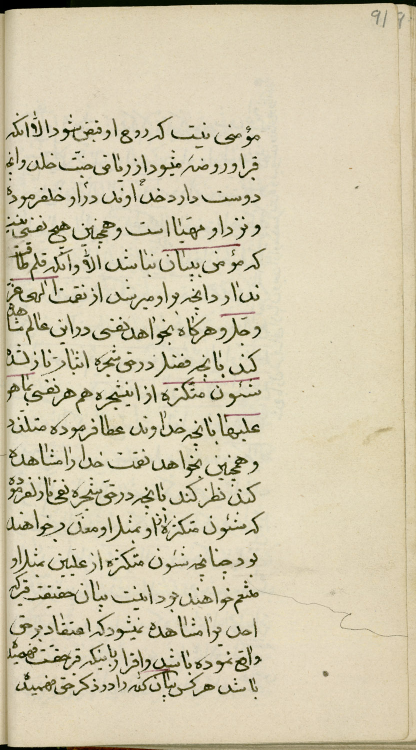 مؤمنی نیست که روح او قبض شود الا آنکه
قبر او روضه میشود از ریاض جنت خلد و آنچه
دوست دارد خداوند در او خلق فرموده
و نزد او مهیا است و همچنین هیچ نفسی نیست
که مؤمن ببیان نباشد الا و آنکه قلم طاقت
ندارد آنچه بر او میرسد از نقمت الهی عز
و جل و هر گاه بخواهد نفسی در این عالم مشاهده
کند بآنچه فضل در حق شجره اثبات نازل شده
شئون متکثره از آن شجره هم هر نفسی
علیها بآنچه خداوند عطا فرموده متلذذ
و همچنین بخواهد نقمت خدا را مشاهده
کند نظر کند بآنچه در حق شجره نفی نازل فرموده
که شئون متکثره او بمثل او معذب خواهند
بود چنانچه شئون متکثره از علیین بمثل او
متنعم خواهند بود اینست بیان حقیقت قبر که
احدی را مشاهده نمیشود که اعتقاد بر حق
واقع نموده باشد و اقرار باینکه قبر حق است
باشد هر کس بیان کند را در ذکر حق